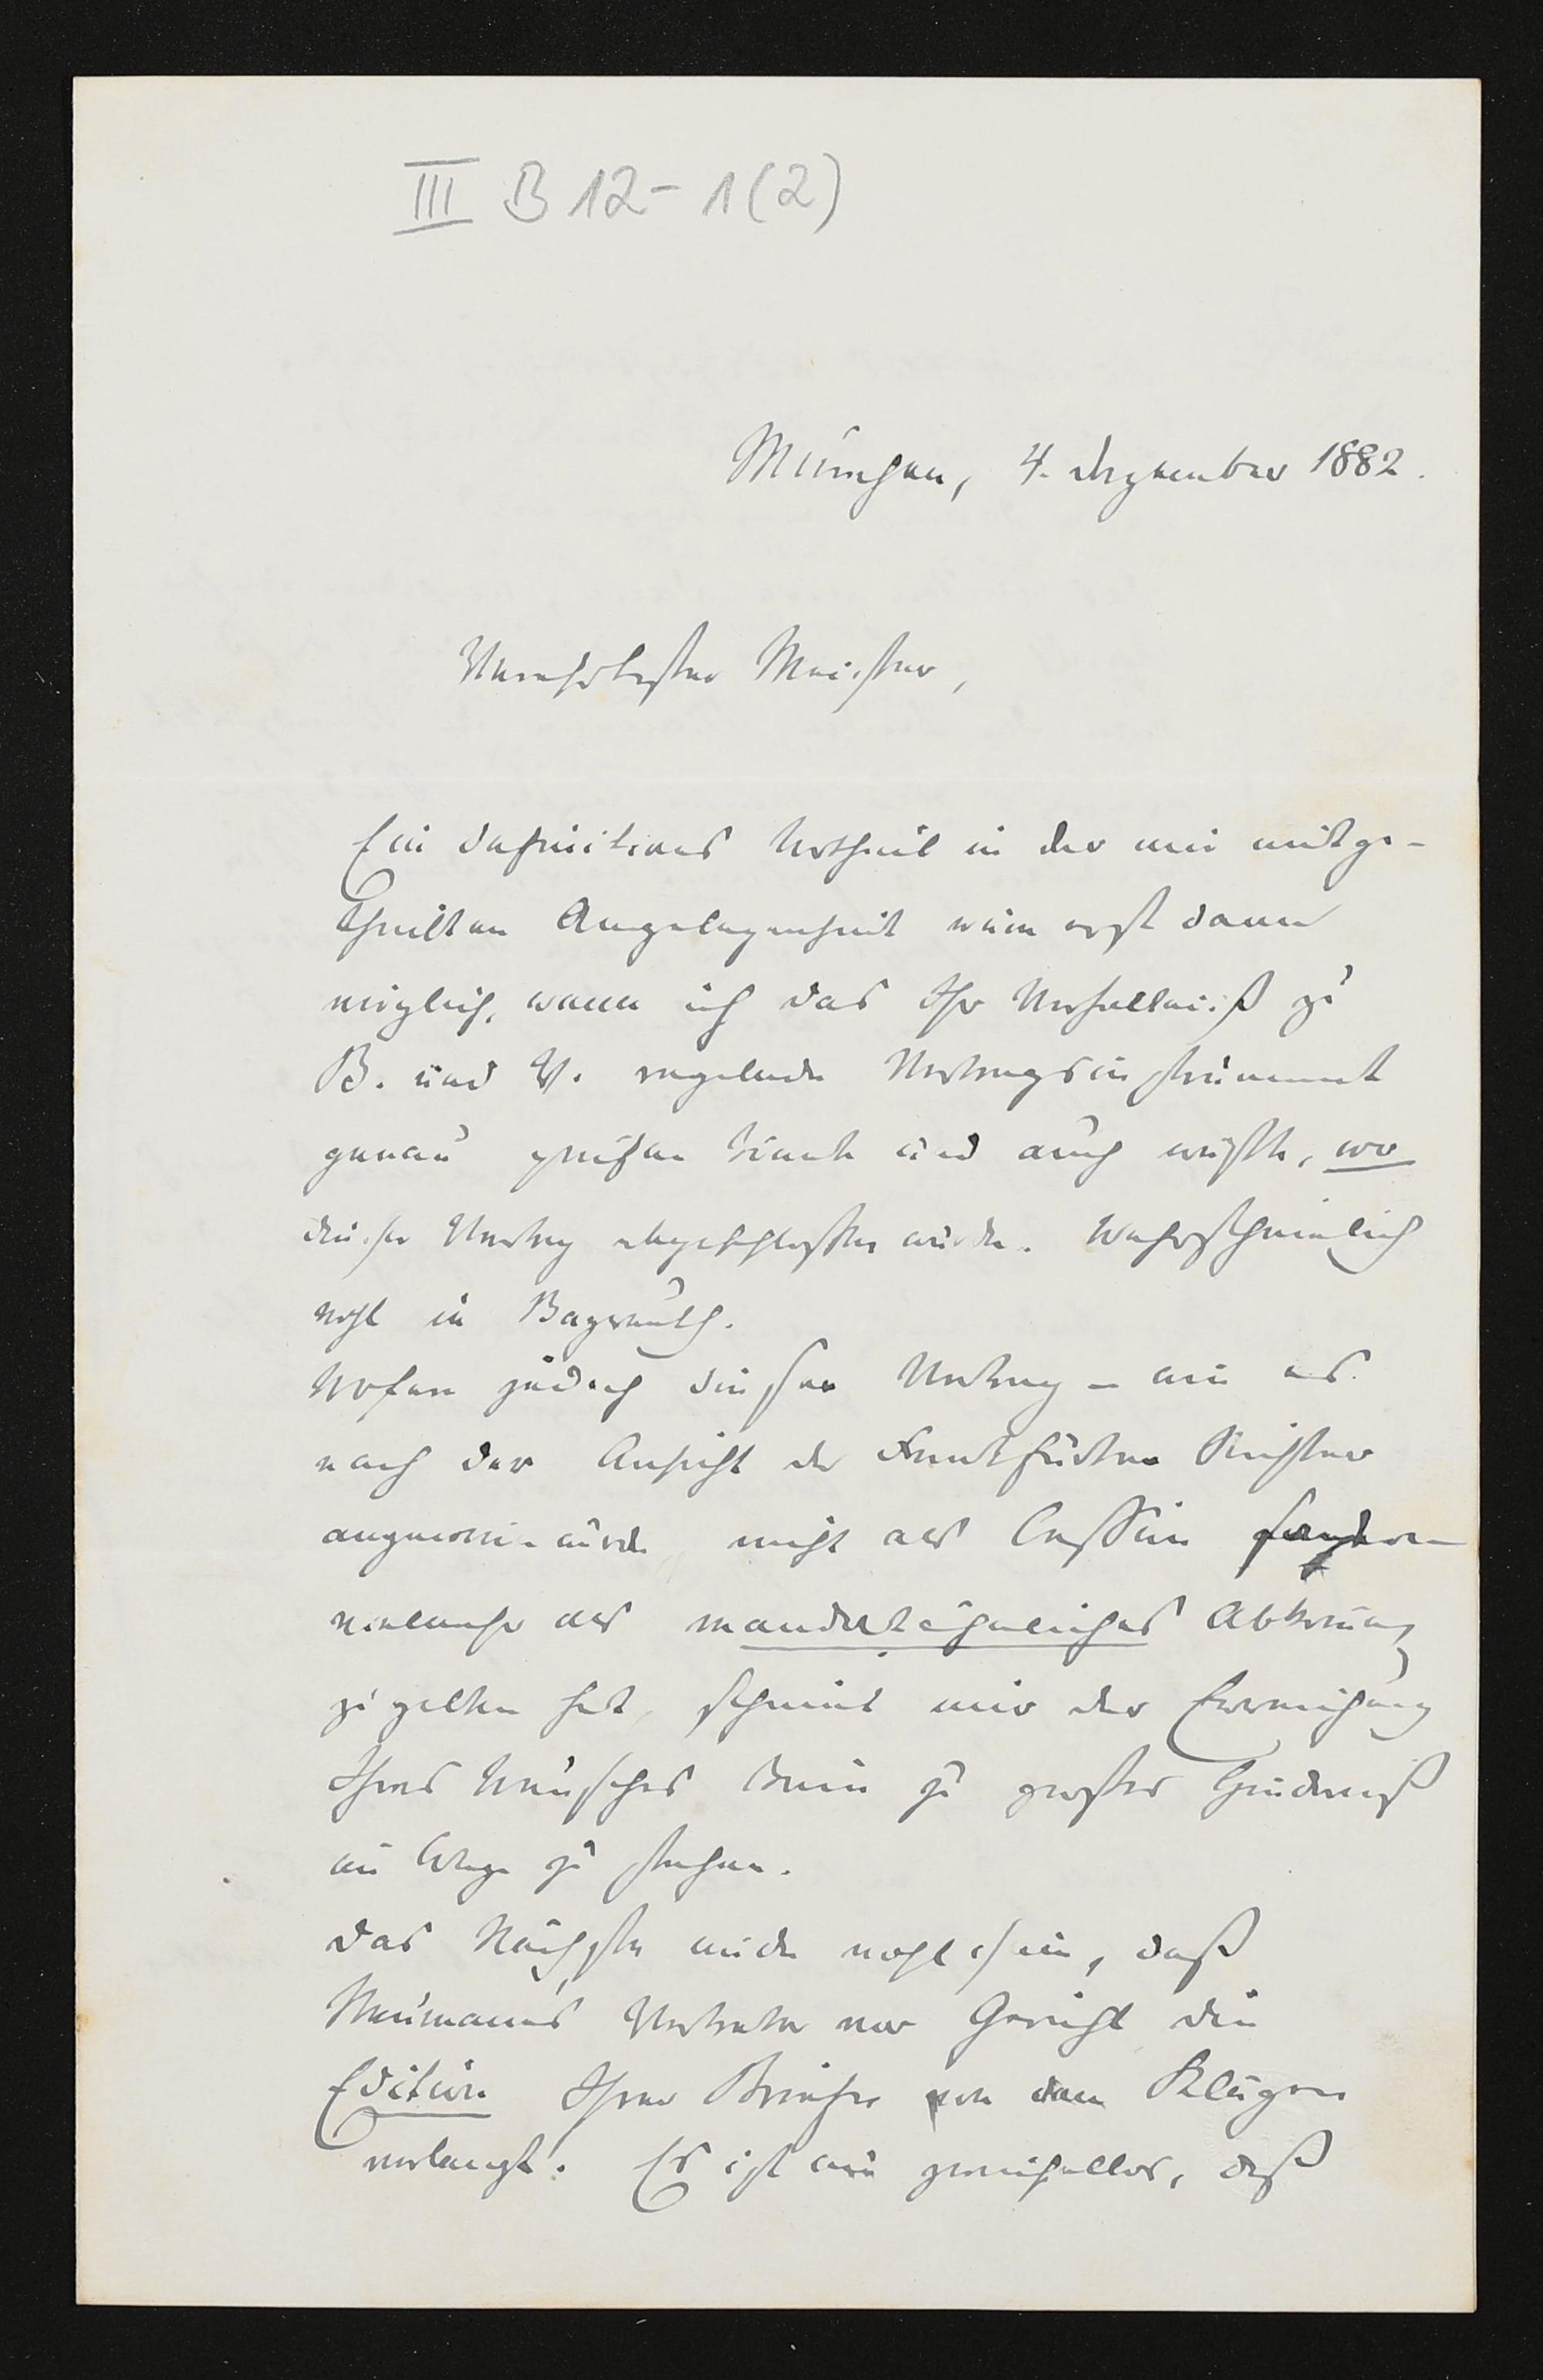 III B 12-1(2)
München, 4. Dezember 1882.
Verehrtester Meister,
Ein definitives Urtheil in der mir mitge-
theilten Angelegenheit wäre erst dann
möglich, wenn ich das Ihr Verhältniß zu
B. und V. regelnde Vertragsinstrument
genau prüfen könnte und auch wüßte, wo
dieser Vertrag abgeschlossen wurde. Wahrscheinlich
wohl in Bayreuth.
Wofern jedoch dieser Vertrag – wie es
nach der Ansicht der Frankfurter Richter
wurde nicht als Cession sondern
vielmehr als mandatähnliches Abkommen
zu gelten hat, scheint mir der Erreichung
Ihres Wunsches kein zu großes Hinderniß
im Wege zu stehen.
Das Nächste würde wohl sein, daß
Neumann's Vertreter vor Gericht die
Edition Ihrer Briefe von dem Kläger
verlangt. Es ist mir zweifellos, daß